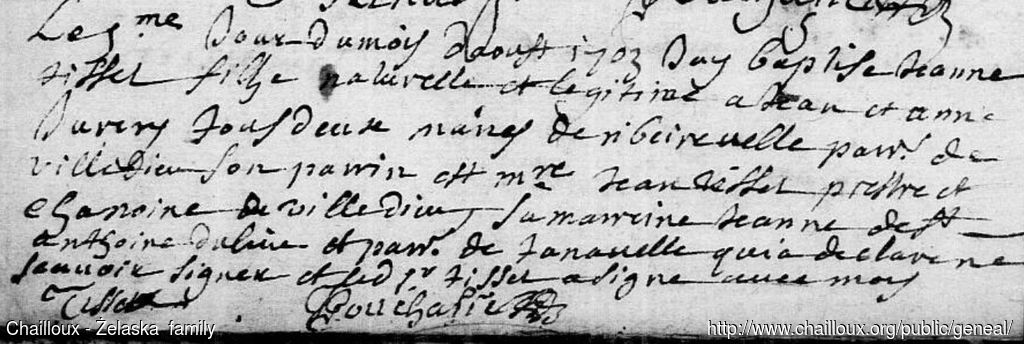 Le 9me Jour du mois daoust 1703 Jay baptise Jeanne
tisset fille naturelle et legitime a Jean et anne
Duvery tous deux natifs de ribeirevelle parr. de
villedieu son parrin est mre Jean tisset prestre et
chanoine de villedieu, sa marrine Jeanne de st
anthoine du lieu et parr. de tanavelle qui a declare ne
scavoir signer et led sr tisset a signe avec moy
Tisset
Chailloux - Żelaska family
http://www.chailloux.org/public/geneal/